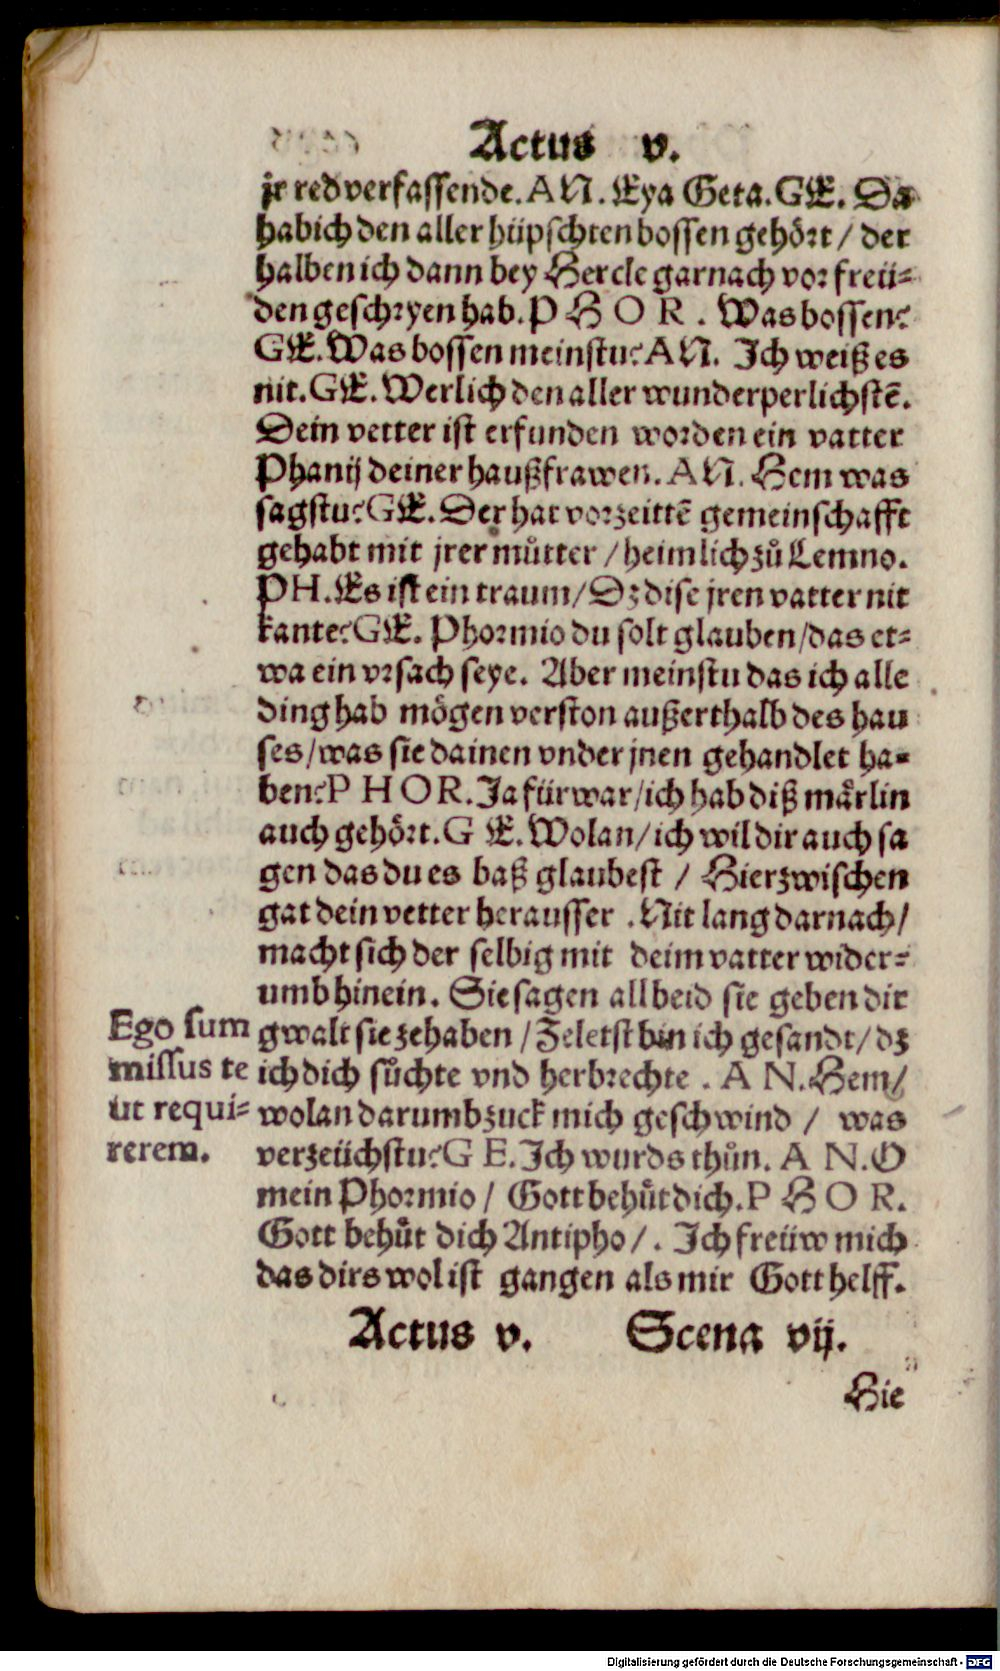 Actus v.
jr red verfassende. AN. Eya Geta. GE. Da
hab ich den aller hüpschten bossen gehört / der
halben ich dann bey Hercle gar nach vor freü-
den geschryen hab. PHOR. Was bossen?
GE. Was bossen meinstu? AN. Ich weiß es
nit. GE. Werlich den aller wunderperlichstē.
Dein vetter ist erfunden worden ein vatter
Phanij deiner haußfrawen. AN. Hem was
sagstu? GE. Der hat vorzeittē gemeinschafft
gehabt mit jrer můtter / heimlich zů Lemno.
PH. Es ist ein traum / Dz dise jren vatter nit
kante? GE. Phormio du solt glauben / das et-
wa ein vrsach seye. Aber meinstu das ich alle
ding hab mögen verston außerthalb des hau
ses / was sie dainen vnder jnen gehandlet ha-
ben? PHOR. Ja fürwar / ich hab diß märlin
auch gehört. GE. Wolan / ich wil dir auch sa
gen das du es baß glaubest / Hierzwischen
gat dein vetter herausser. Nit lang darnach /
macht sich der selbig mit deim vatter wider-
umb hinein. Sie sagen all beid sie geben dir
gwalt sie zehaben / Zeletst bin ich gesandt / dz
ich dich sůchte vnd herbrechte. AN. Hem /
wolan darumb zuck mich geschwind / was
verzeüchstu? GE. Ich wurds thůn. AN. O
mein Phormio / Gott behůt dich. PHOR.
Gott behůt dich Antipho /. Ich freüw mich
das dirs wol ist gangen als mir Gott helff.
Ego sum
missus te
ut requi-
rerem.
Actus v. Scena vij.
Hie
Digitalisierung gefördert durch die Deutsche Forschungsgemeinschaft - DFG